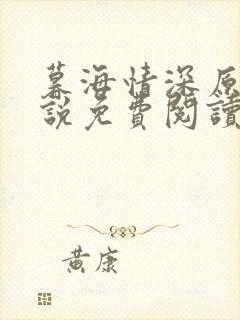 幕海情深原
說免費閱讀
黃康